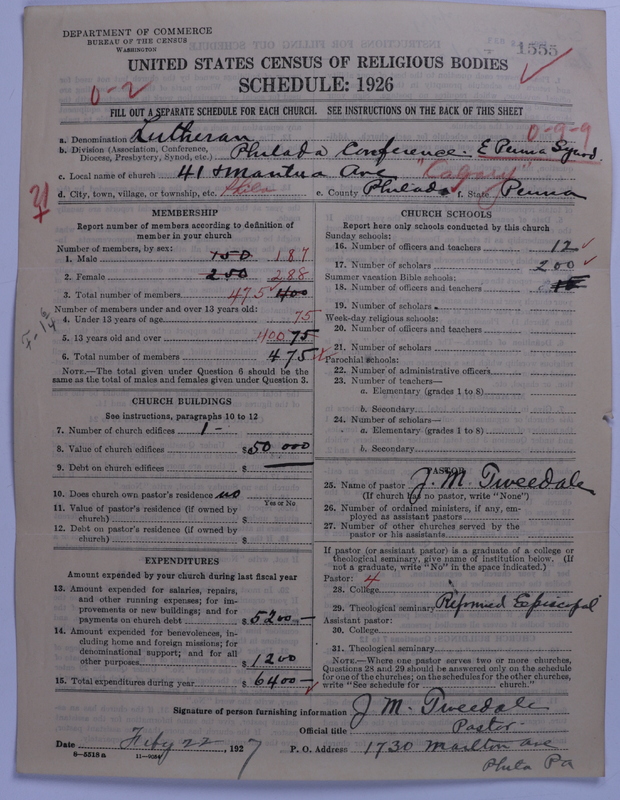 DEPARTMENT OF COMMERCE
BUREAU OF THE CENSUS
WASHINGTON
1555
UNITED STATES CENSUS OF RELIGIOUS BODIES
SCHEDULE: 1926
0-2
FILL OUT A SEPARATE SCHEDULE FOR EACH CHURCH. SEE INSTRUCTIONS ON THE BACK OF THIS SHEET
0-9-9
a. Denomination Lutheran
b. Division (Association, Conference, Diocese, Presbytery, Synod, etc.) Philada Conference. E Penna Synod
c. Local name of church 41 & Mantua Ave "Calgary"
d. City, town, village, or township, etc. Phila e. County Philada f. State Penna
MEMBERSHIP
Report number of members according to definition of member in your church
Number of members, by sex:
1. Male 150 187
2. Female 250 288
3. Total number of members 475 400
Number of members under and over 13 years old:
4. Under 13 years of age 75
5. 13 years old and over 400 75
6. Total number of members 475
NOTE.—The total given under Question 6 should be the same as the total of males and females given under Question 3.
CHURCH BUILDINGS
See instructions, paragraphs 10 to 12
7. Number of church edifices 1 -
8. Value of church edifices $50 000
9. Debt on church edifices $
10. Does church own pastor's residence no
Yes or No
11. Value of pastor's residence (if owned by church) $
12. Debt on pastor's residence (if owned by church) $
EXPENDITURES
Amount expended by your church during last fiscal year
13. Amount expended for salaries, repairs, and other running expenses; for improvements or new buildings; and for payments on church debt $5200 —
14. Amount expended for benevolences, including home and foreign missions; for denominational support; and for all other purposes $1200
15. Total expenditures during year $6400 —
CHURCH SCHOOLS
Report here only schools conducted by this church
Sunday schools:
16. Number of officers and teachers 12
17. Number of scholars 200
Summer vacation Bible schools:
18. Number of officers and teachers
19. Number of scholars
Week-day religious schools:
20. Number of officers and teachers
21. Number of scholars
Parochial schools:
22. Number of administrative officers
23. Number of teachers—
a. Elementary (grades 1 to 8)
b. Secondary
24. Number of scholars—
a. Elementary (grades 1 to 8)
b. Secondary
PASTOR
25. Name of pastor J. M. Tweedale
(If church has no pastor, write "None")
26. Number of ordained ministers, if any, employed as assistant pastors
27. Number of other churches served by the pastor or his assistants
If pastor (or assistant pastor) is a graduate of a college or theological seminary, give name of institution below. (If not a graduate, write "No" in the space indicated.)
Pastor: 4
28. College
29. Theological seminary Reformed Episcopal
Assistant pastor:
30. College
31. Theological seminary
NOTE.—Where one pastor serves two or more churches, Questions 28 and 29 should be answered only on the schedule for one of the churches; on the schedules for the other churches, write "See schedule for church."
Signature of person furnishing information J. M. Tweedale
Official title Pastor
Date Feby 22 1927 P. O. Address 1730 Marlton Ave
Phila Pa
8—5518a